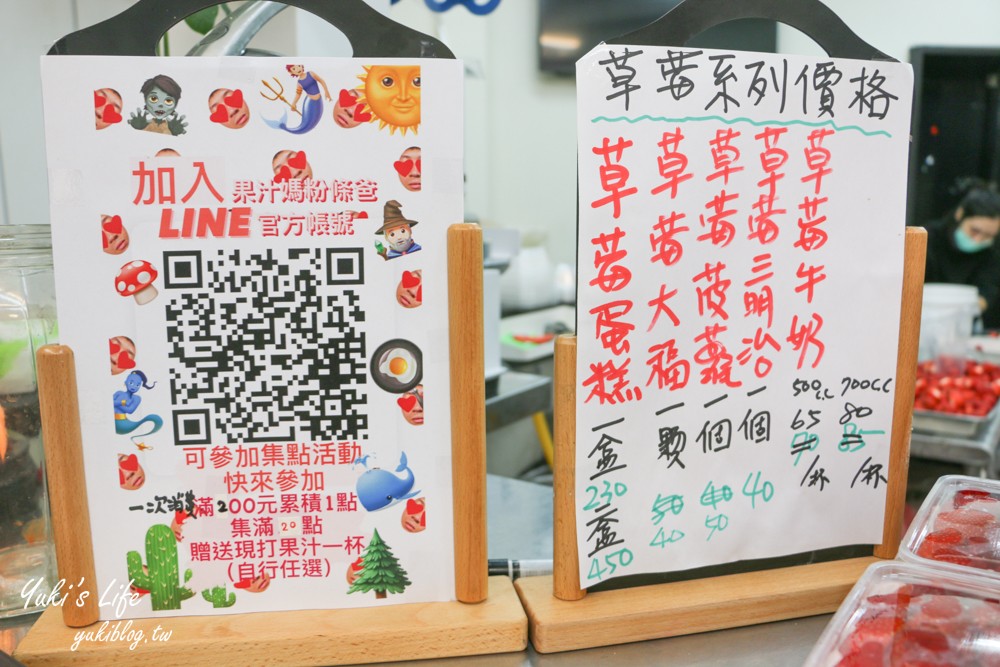 加入 果汁媽粉條爸
LINE 官方帳號
可參加集點活動
快來參加
一次消費滿200元累積1點
集滿20點
贈送現打果汁一杯
(自行任選)
草莓系列價格
草莓蛋糕
一盒
230
二盒
450
草莓大福
一顆
50
40
草莓菠蘿
一個
40
50
草莓三明治
一個
40
草莓牛奶
500c.c 700c.c
65 80
70 85
/杯 /杯
Yuki's Life
yukiblog.tw